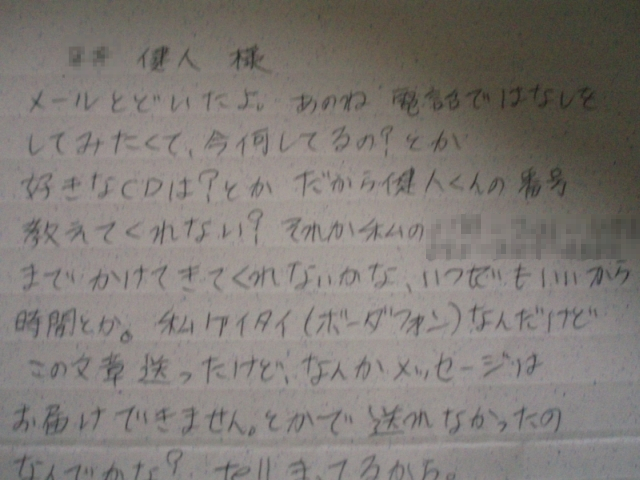 健人 様
メールとどいたよ。 あのね 電話ではなしを
してみたくて、今何してるの?とか
好きなCDは?とか だから健人くんの番号
教えてくれない? それか私の
までかけてきてくれないかな、いつでもいいから
時間とか。 私ケイタイ(ボーダフォン)なんだけど
この文章送ったけど、なんかメッセージは
お届けできません。とかで送れなかったの
なんでかな? tellまってるから。